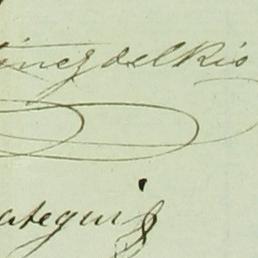 tinez del Rio
ategui